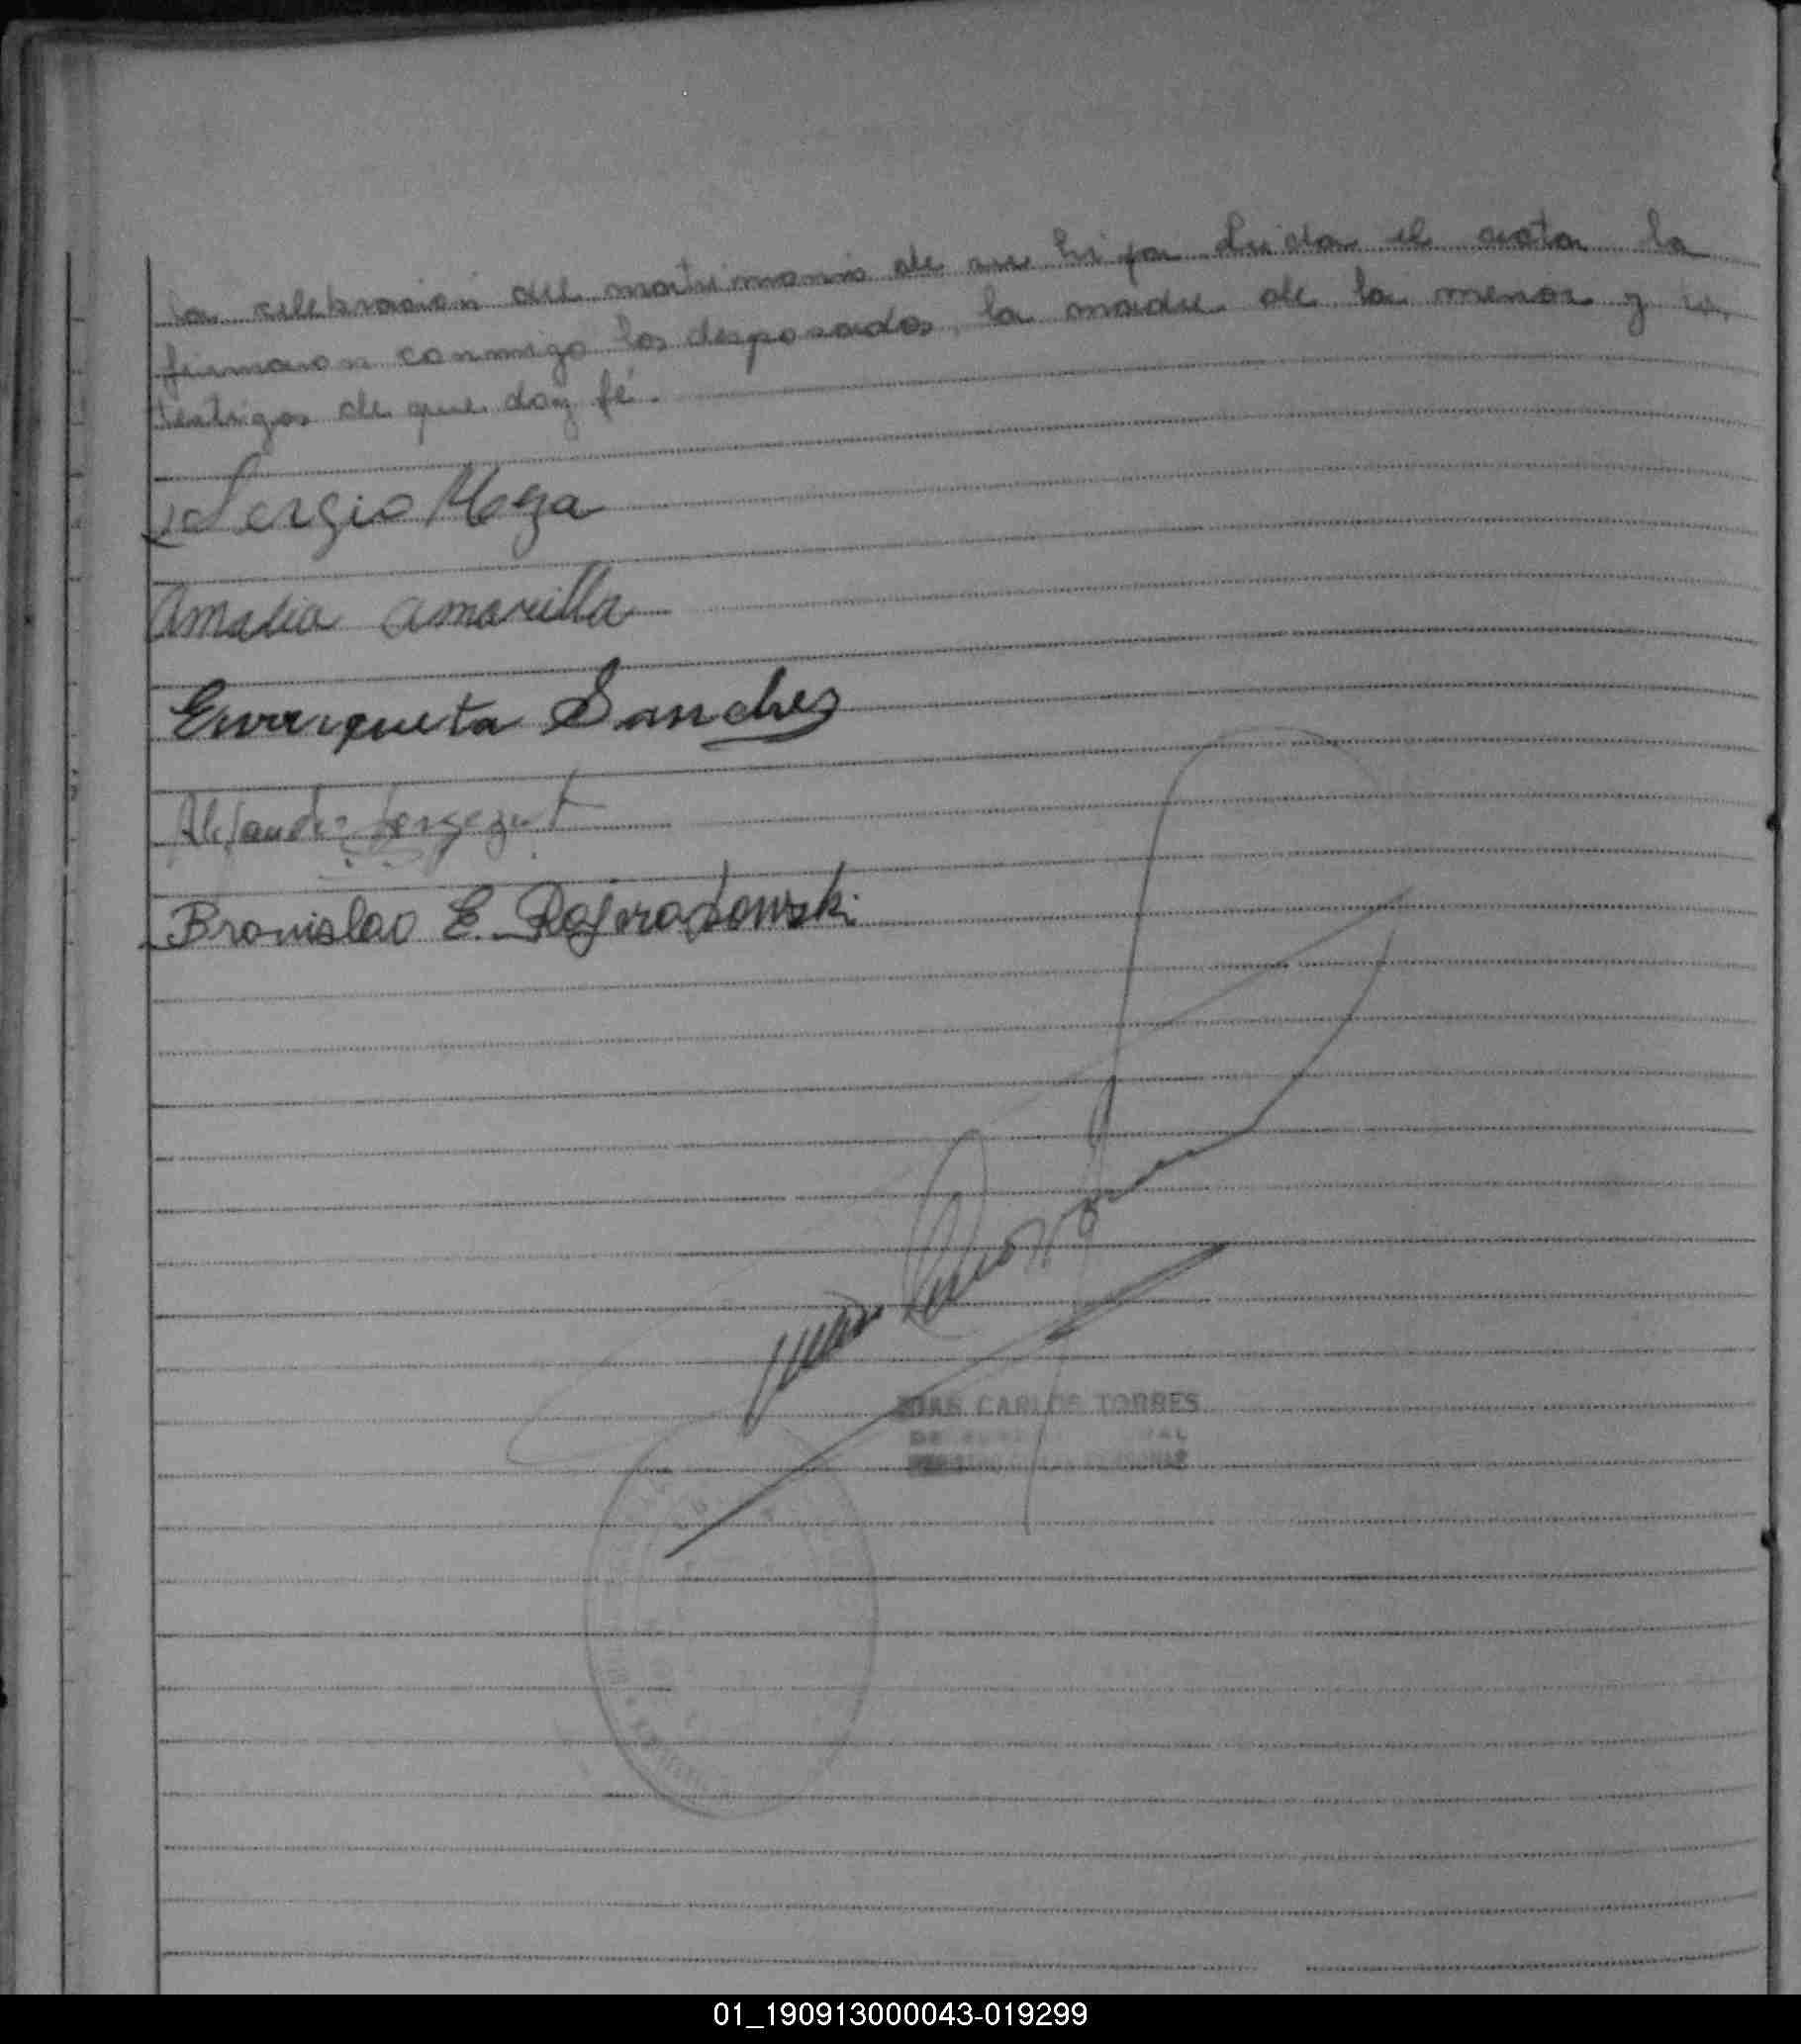 la celebración del matrimonio de su hija Leida el acta la
firmaron conmigo los desposados, la madre de la menor y
testigos de que doy fé.
Sergio Meza
Amalia Amarilla
Enrriqueta Sanchez
Alejandro
Bronislao E.
JUAN CARLOS TORRES
01_190913000043-019299